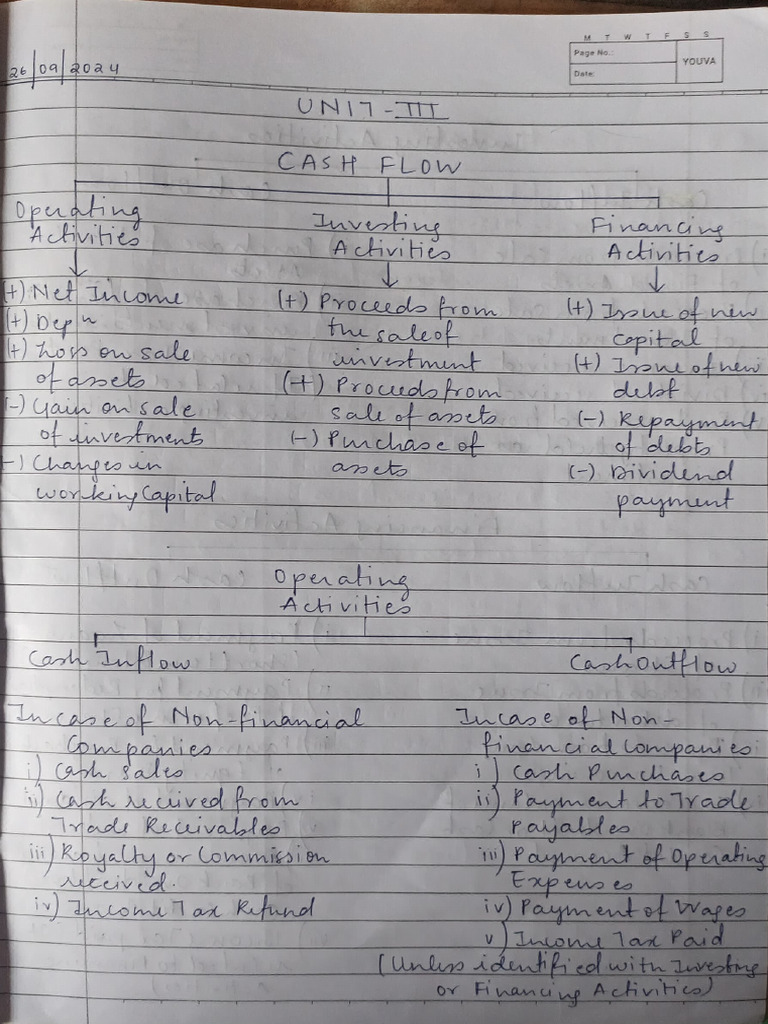 M T W T F S S
Page No.:
Date:
YOUVA
26/09/2024
UNIT-III
CASH FLOW
Operating
Activities
(+) Net Income
(+) Depn
(+) Loss on sale
of assets
(-) Gain on sale
of investments
(-) Changes in
working Capital
Investing
Activities
(+) Proceeds from
the sale of
investment
(+) Proceeds from
sale of assets
(-) Purchase of
assets
Financing
Activities
(+) Issue of new
capital
(+) Issue of new
debt
(-) Repayment
of debts
(-) Dividend
payment
Operating
Activities
Cash Inflow
In case of Non-financial
Companies
i) Cash Sales
ii) Cash received from
Trade Receivables
iii) Royalty or Commission
received.
iv) Income Tax Refund
Cash Outflow
In case of Non-
financial Companies
i) Cash Purchases
ii) Payment to Trade
Payables
iii) Payment of Operating
Expenses
iv) Payment of Wages
v) Income Tax Paid
(Unless identified with Investing
or Financing Activities)